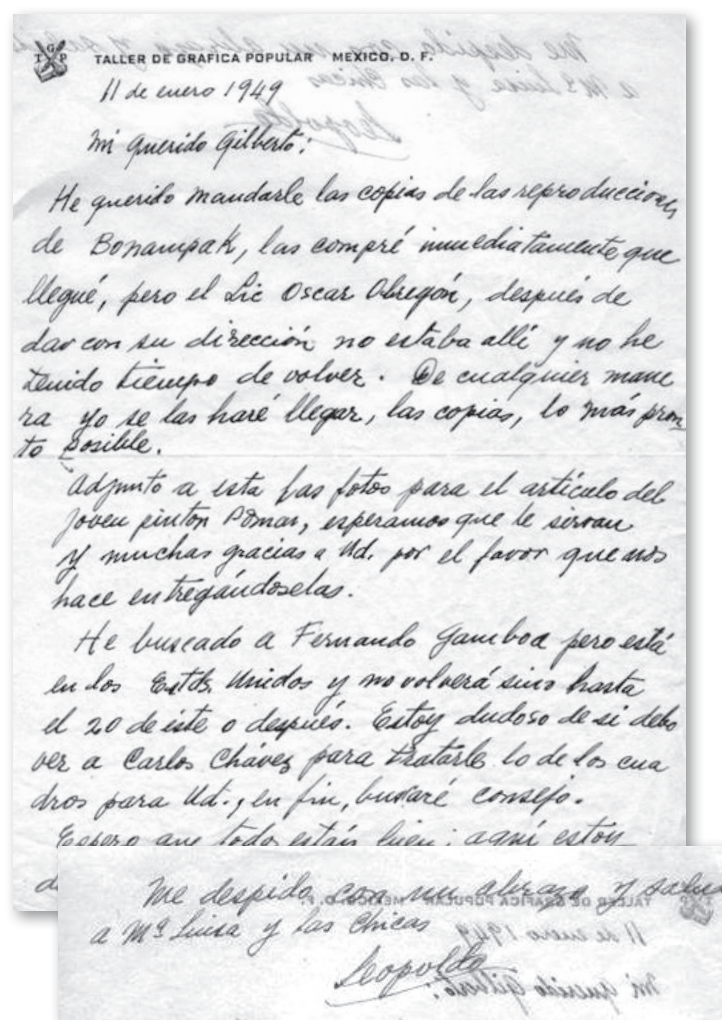 TGP
TALLER DE GRAFICA POPULAR MEXICO, D. F.
11 de enero 1949
Mi querido Gilberto:
He querido mandarle las copias de las reproducciones
de Bonampak, las compré inmediatamente que
llegué, pero el Lic Oscar Obregón, después de
dar con su dirección no estaba allí y no he
tenido tiempo de volver. De cualquier mane
ra yo se las haré llegar, las copias, lo más pron
to posible.
Adjunto a esta las fotos para el artículo del
joven pintor Pomar, esperamos que le sirvan
y muchas gracias a Ud. por el favor que nos
hace entregándoselas.
He buscado a Fernando Gamboa pero está
en los Estds. Unidos y no volverá sino hasta
el 20 de este o después. Estoy dudoso de si debo
ver a Carlos Chávez para tratarle lo de los cua
dros para Ud., en fin, buscaré consejo.
Espero que todo están bien; aquí estoy
Me despido con un abrazo y salud
a Mª Luisa y las chicas
Leopoldo